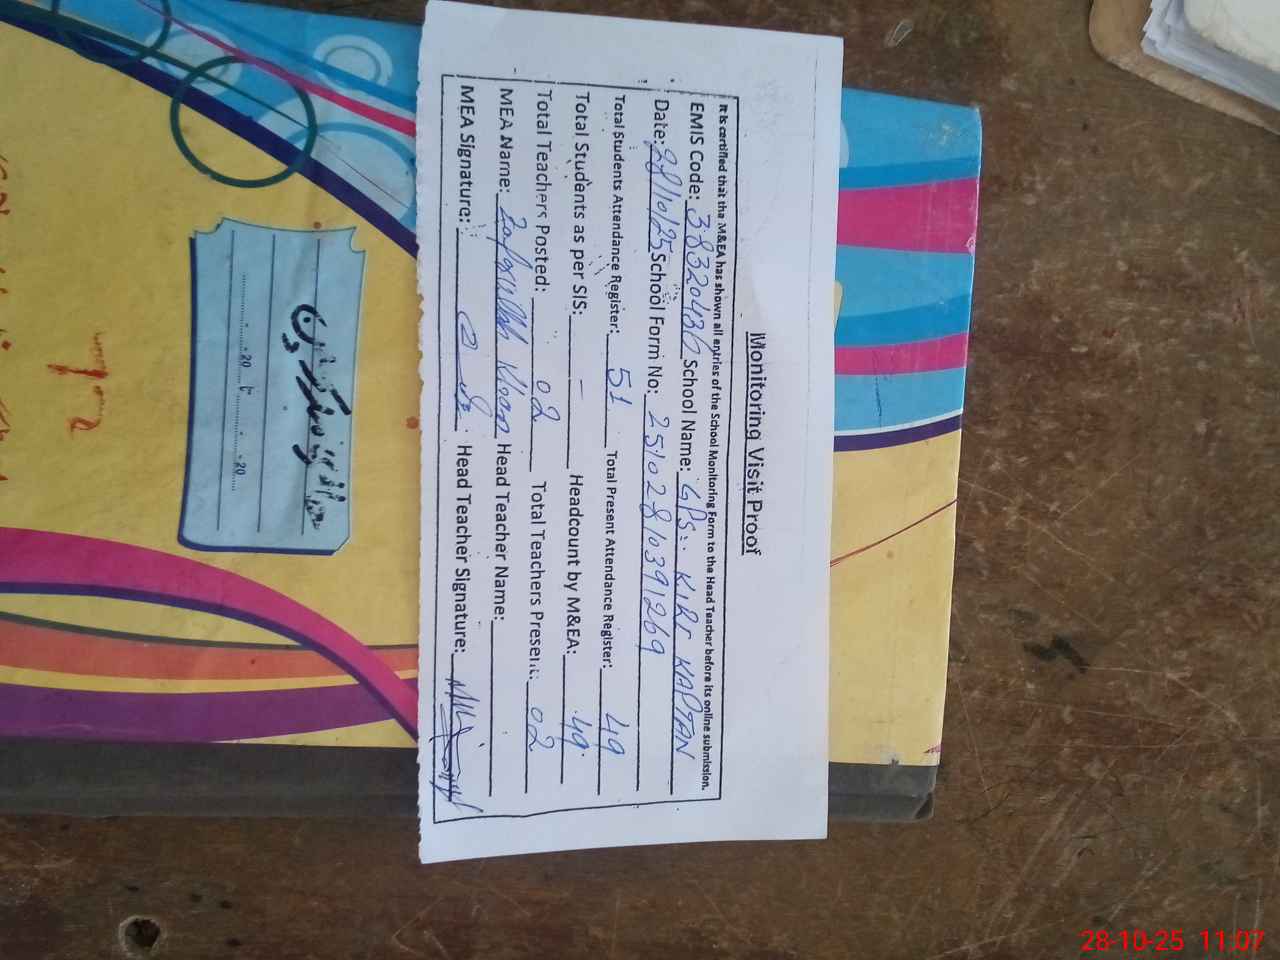 Monitoring Visit Proof
It is certified that the M&EA has shown all entries of the School Monitoring Form to the Head Teacher before its online submission.
EMIS Code: 38320436 School Name: GPS: KIRI KAPTAN
Date: 28/10/25 School Form No: 2510281039 1269
Total Students Attendance Register: 51 Total Present Attendance Register: 49
Total Students as per SIS: - Headcount by M&EA: 49
Total Teachers Posted: 02 Total Teachers Present: 02
MEA Name: Zafarullah Khan Head Teacher Name:
MEA Signature: Head Teacher Signature:
20 20
28-10-25 11:07